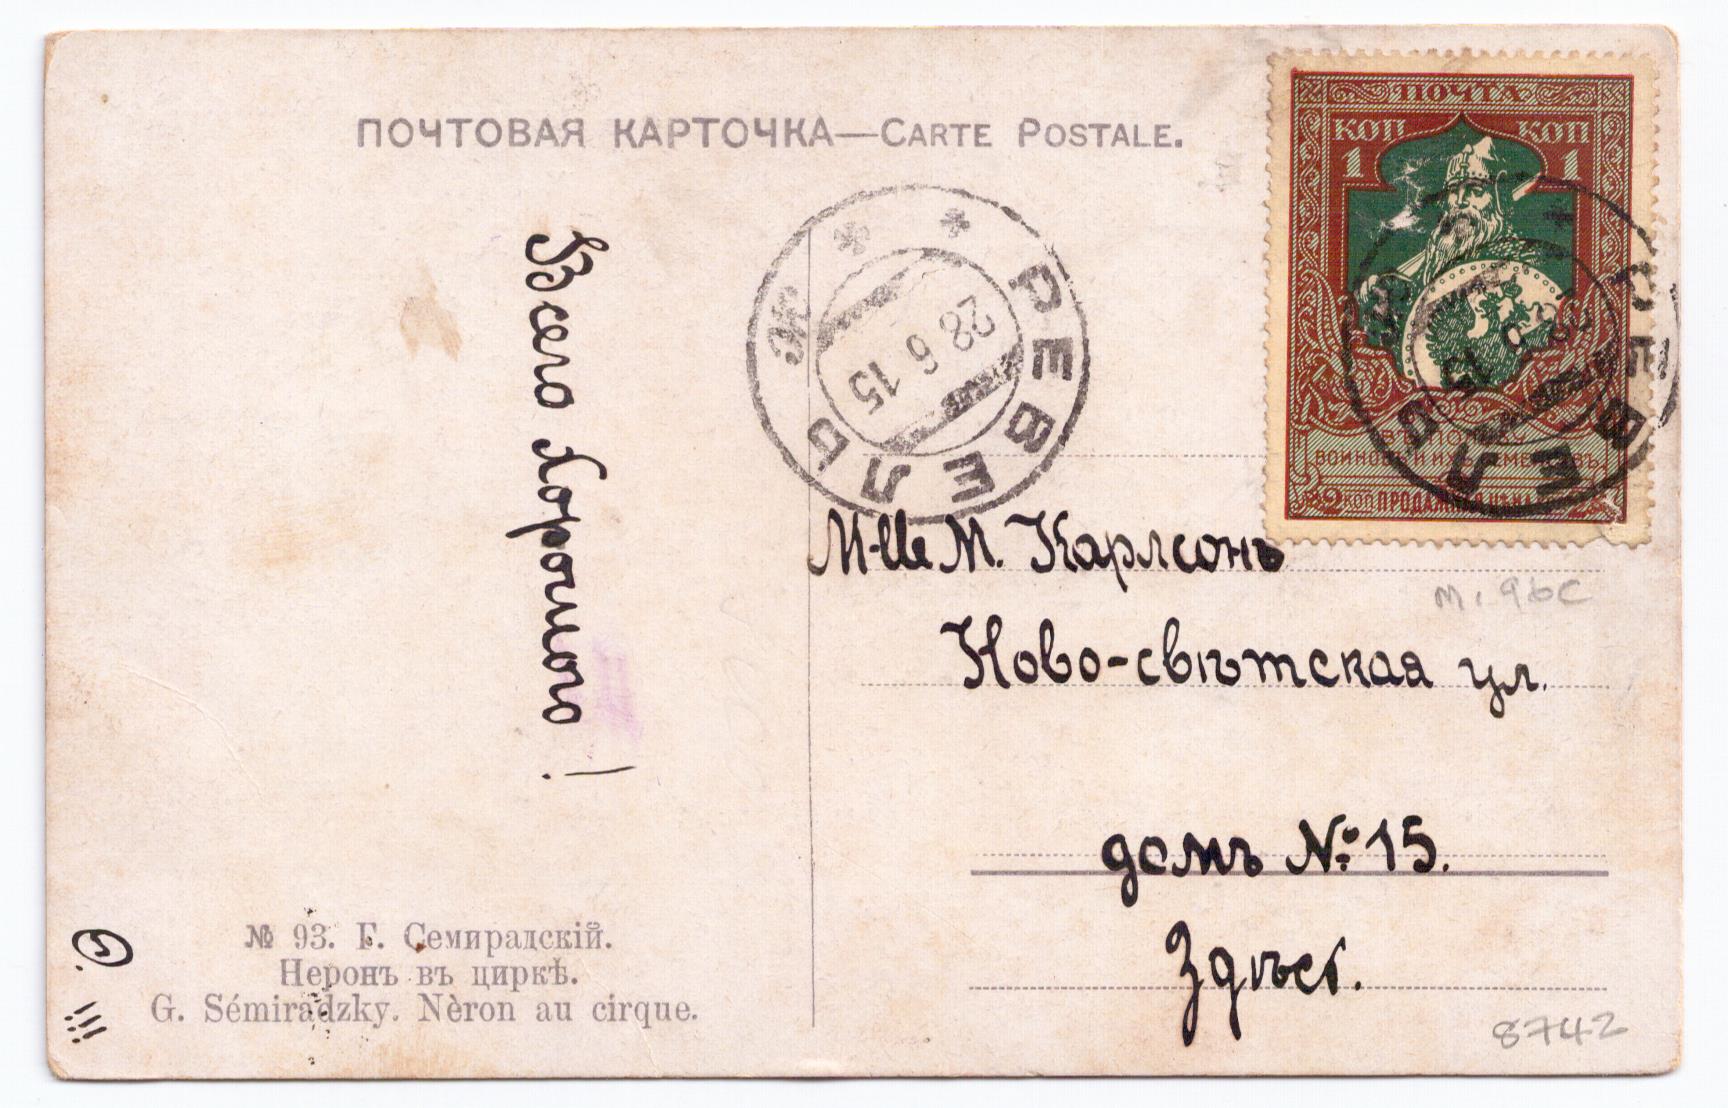 ПОЧТОВАЯ КАРТОЧКА—CARTE POSTALE.
ПОЧТА
КОП КОП
1 1
ВЪ ПОЛЬЗУ
ВОИНОВЪ И ИХЪ СЕМЕЙСТВЪ
2 КОП ПРОДАЖНАЯ ЦѢНА
РЕВЕЛЬ
28 6 15
РЕВЕЛЬ
28 6 15
Всего хорошого!
М-lle М. Карлсонъ
м. 96c
Ново-свѣтская ул.
домъ №15.
Здѣсь.
№ 93. Г. Семирадскій.
Неронъ въ циркѣ.
G. Sémiradzky. Nèron au cirque.
8742